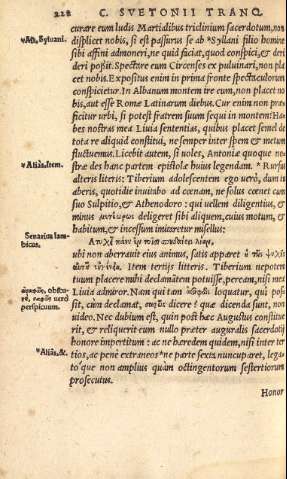 228 C. SVETONII TRANQ.
curare eum ludis Martialibus triclinium sacerdotum, non
ᵃAl. Syluani. displicet nobis, si est passurus se ab ᵃSyllani filio homine
sibi affini admoneri, ne quid faciat, quod conspici, & deri
deri possit. Spectare eum Circenses ex puluinari, non pla
cet nobis. Expositus enim in prima fronte spectaculorum
conspicietur. In Albanum montem ire eum, non placet no
bis, aut esse Romæ Latinarum diebus. Cur enim non præ
ficitur vrbi, si potest fratrem suum sequi in montem? Ha
bes nostras mea Liuia sententias, quibus placet semel de
tota re aliquid constitui, ne semper inter spem & metum
fluctuemus. Licebit autem, si voles, Antoniæ quoque no
stræ des hanc partem epistolæ huius legendam.
ᵃAliâs, Item. ᵃRursus
alteris literis: Tiberium adolescentem ego verò, dum tu
aberis, quotidie inuitabo ad cœnam, ne solus cœnet cum
suo Sulpitio, & Athenodoro: qui vellem diligentius, &
minus deligeret sibi aliquem, cuius motum, &
habitum, & incessum imitaretur misellus:
Senarius Iam-
bicus.
ubi non aberrauit eius animus, satis apparet
Item tertijs literis. Tiberium nepotem
tuum placere nobi declamātem potuisse, peream, nisi mea
Liuia admiror. Nam qui tam loquatur, qui pos
obscu-
rè, uerò
perspicuum.
sit, cùm declamat, dicere quæ dicenda sunt, non
video. Nec dubium est, quin post hæc Augustus constitue
rit, & reliquerit eum nullo præter auguralis sacerdotij
honore impertitum: ac ne hæredem quidem, nisi inter ter
ᵃAliâs, &. tios, ac penè extraneos ᵃne parte sexta nuncuparet, lega
to'que non amplius quàm octingentorum sestertiorum
prosecutus.
Honor